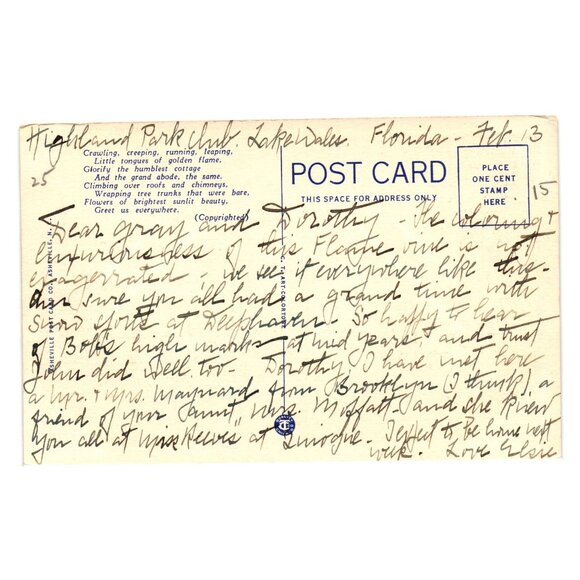 Highland Park Club. Lake Wales. Florida - Feb. 13
Crawling, creeping, running, leaping,
Little tongues of golden flame,
Glorify the humblest cottage
And the grand abode, the same.
Climbing over roofs and chimneys,
Wrapping tree trunks that were bare,
Flowers of brightest sunlit beauty,
Greet us everywhere.
(Copyrighted)
25
POST CARD
THIS SPACE FOR ADDRESS ONLY
PLACE
ONE CENT
STAMP
HERE
15
Dear Gray and Dorothy - The coloring &
luxuriousness of this Flame vine is not
exagerrated - we see it everywhere like this -
am sure you all had a grand time with
snow sports at Deephaven. So happy to hear
of Bob's high marks at mid years and trust
John did well too - Dorothy, I have met here
a Mr. & Mrs. Maynard from Brooklyn (I think), a
friend of your Aunt, Mrs. Moffatt and she knew
you all at "Miss Reeves" at . I expect to be home next
week. Love Elsie
ASHEVILLE POST CARD CO., ASHEVILLE, N.
C. T. ART-COLORTONE